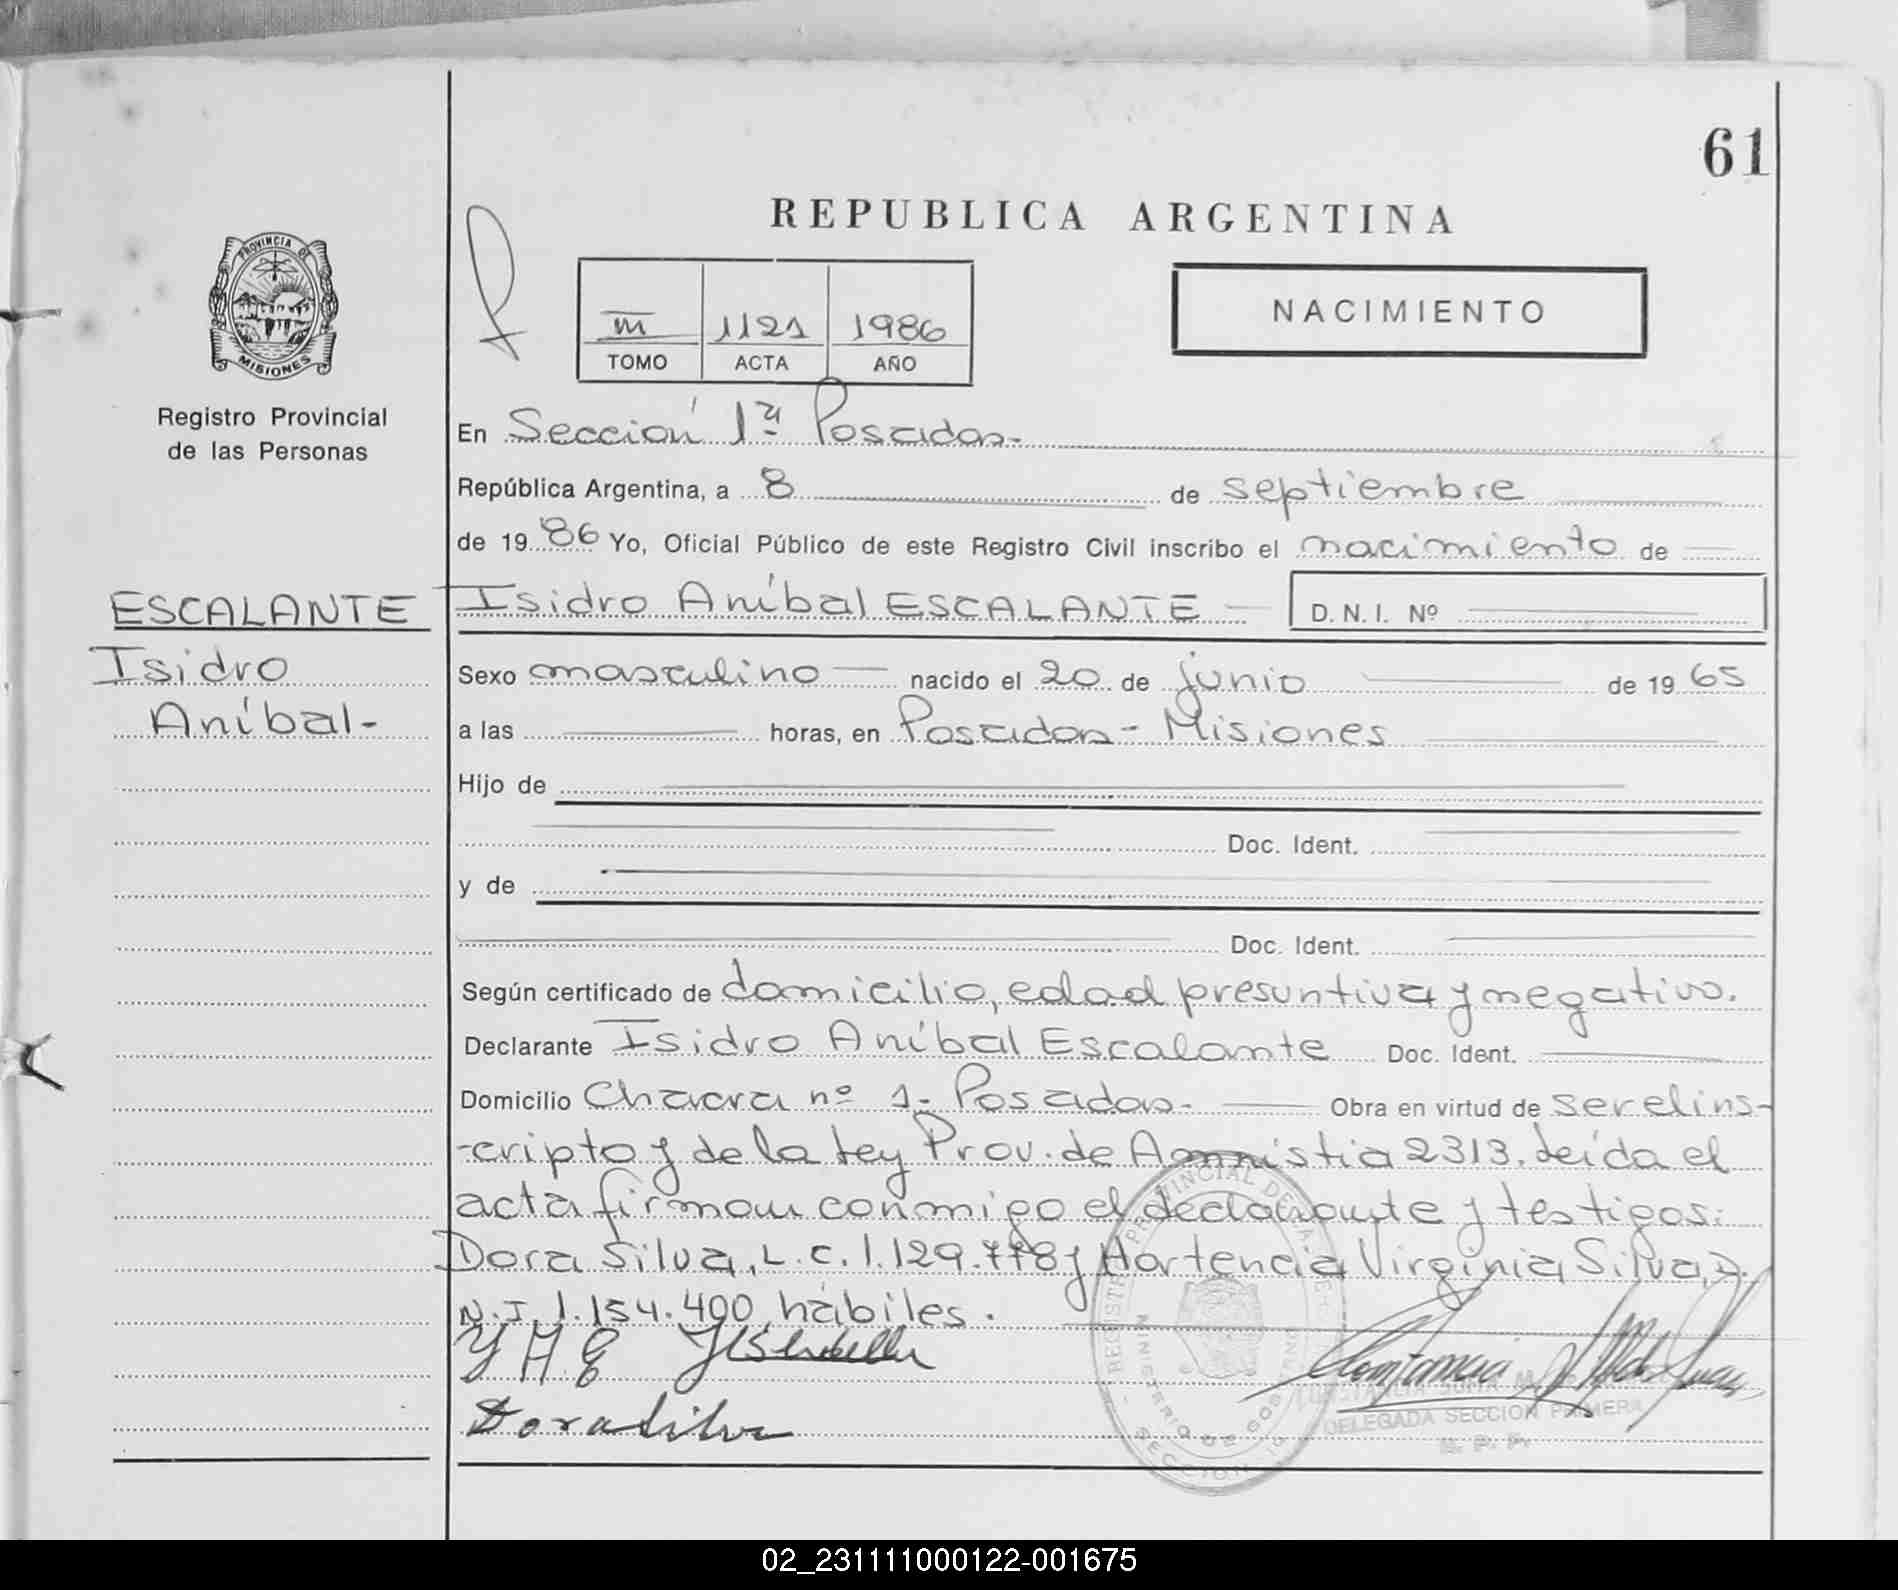 61
REPUBLICA ARGENTINA
PROVINCIA DE
MISIONES
Registro Provincial
de las Personas
III 1121 1986
TOMO ACTA AÑO
NACIMIENTO
En Sección 1ª Posadas-
República Argentina, a 8 de septiembre
de 1986 Yo, Oficial Público de este Registro Civil inscribo el nacimiento de
ESCALANTE
Isidro
Aníbal-
Isidro Aníbal ESCALANTE D.N.I. Nº
Sexo masculino nacido el 20 de junio de 1965
a las horas, en Posadas- Misiones
Hijo de
Doc. Ident.
y de
Doc. Ident.
Según certificado de domicilio, edad presuntiva y negativo.
Declarante Isidro Aníbal Escalante Doc. Ident.
Domicilio Chacra nº 1- Posadas- Obra en virtud de ser el ins-
-cripto y de la Ley Prov. de Amnistia 2313. Leída el
acta firman conmigo el declarante y testigos:
Dora Silva, L.C. 1.129.778 y Hortencia Virginia Silva, D.
N.I. 1.154.400, hábiles.
Dora Silva
DELEGADA SECCION PRIMERA
R. P. P.
02_231111000122-001675